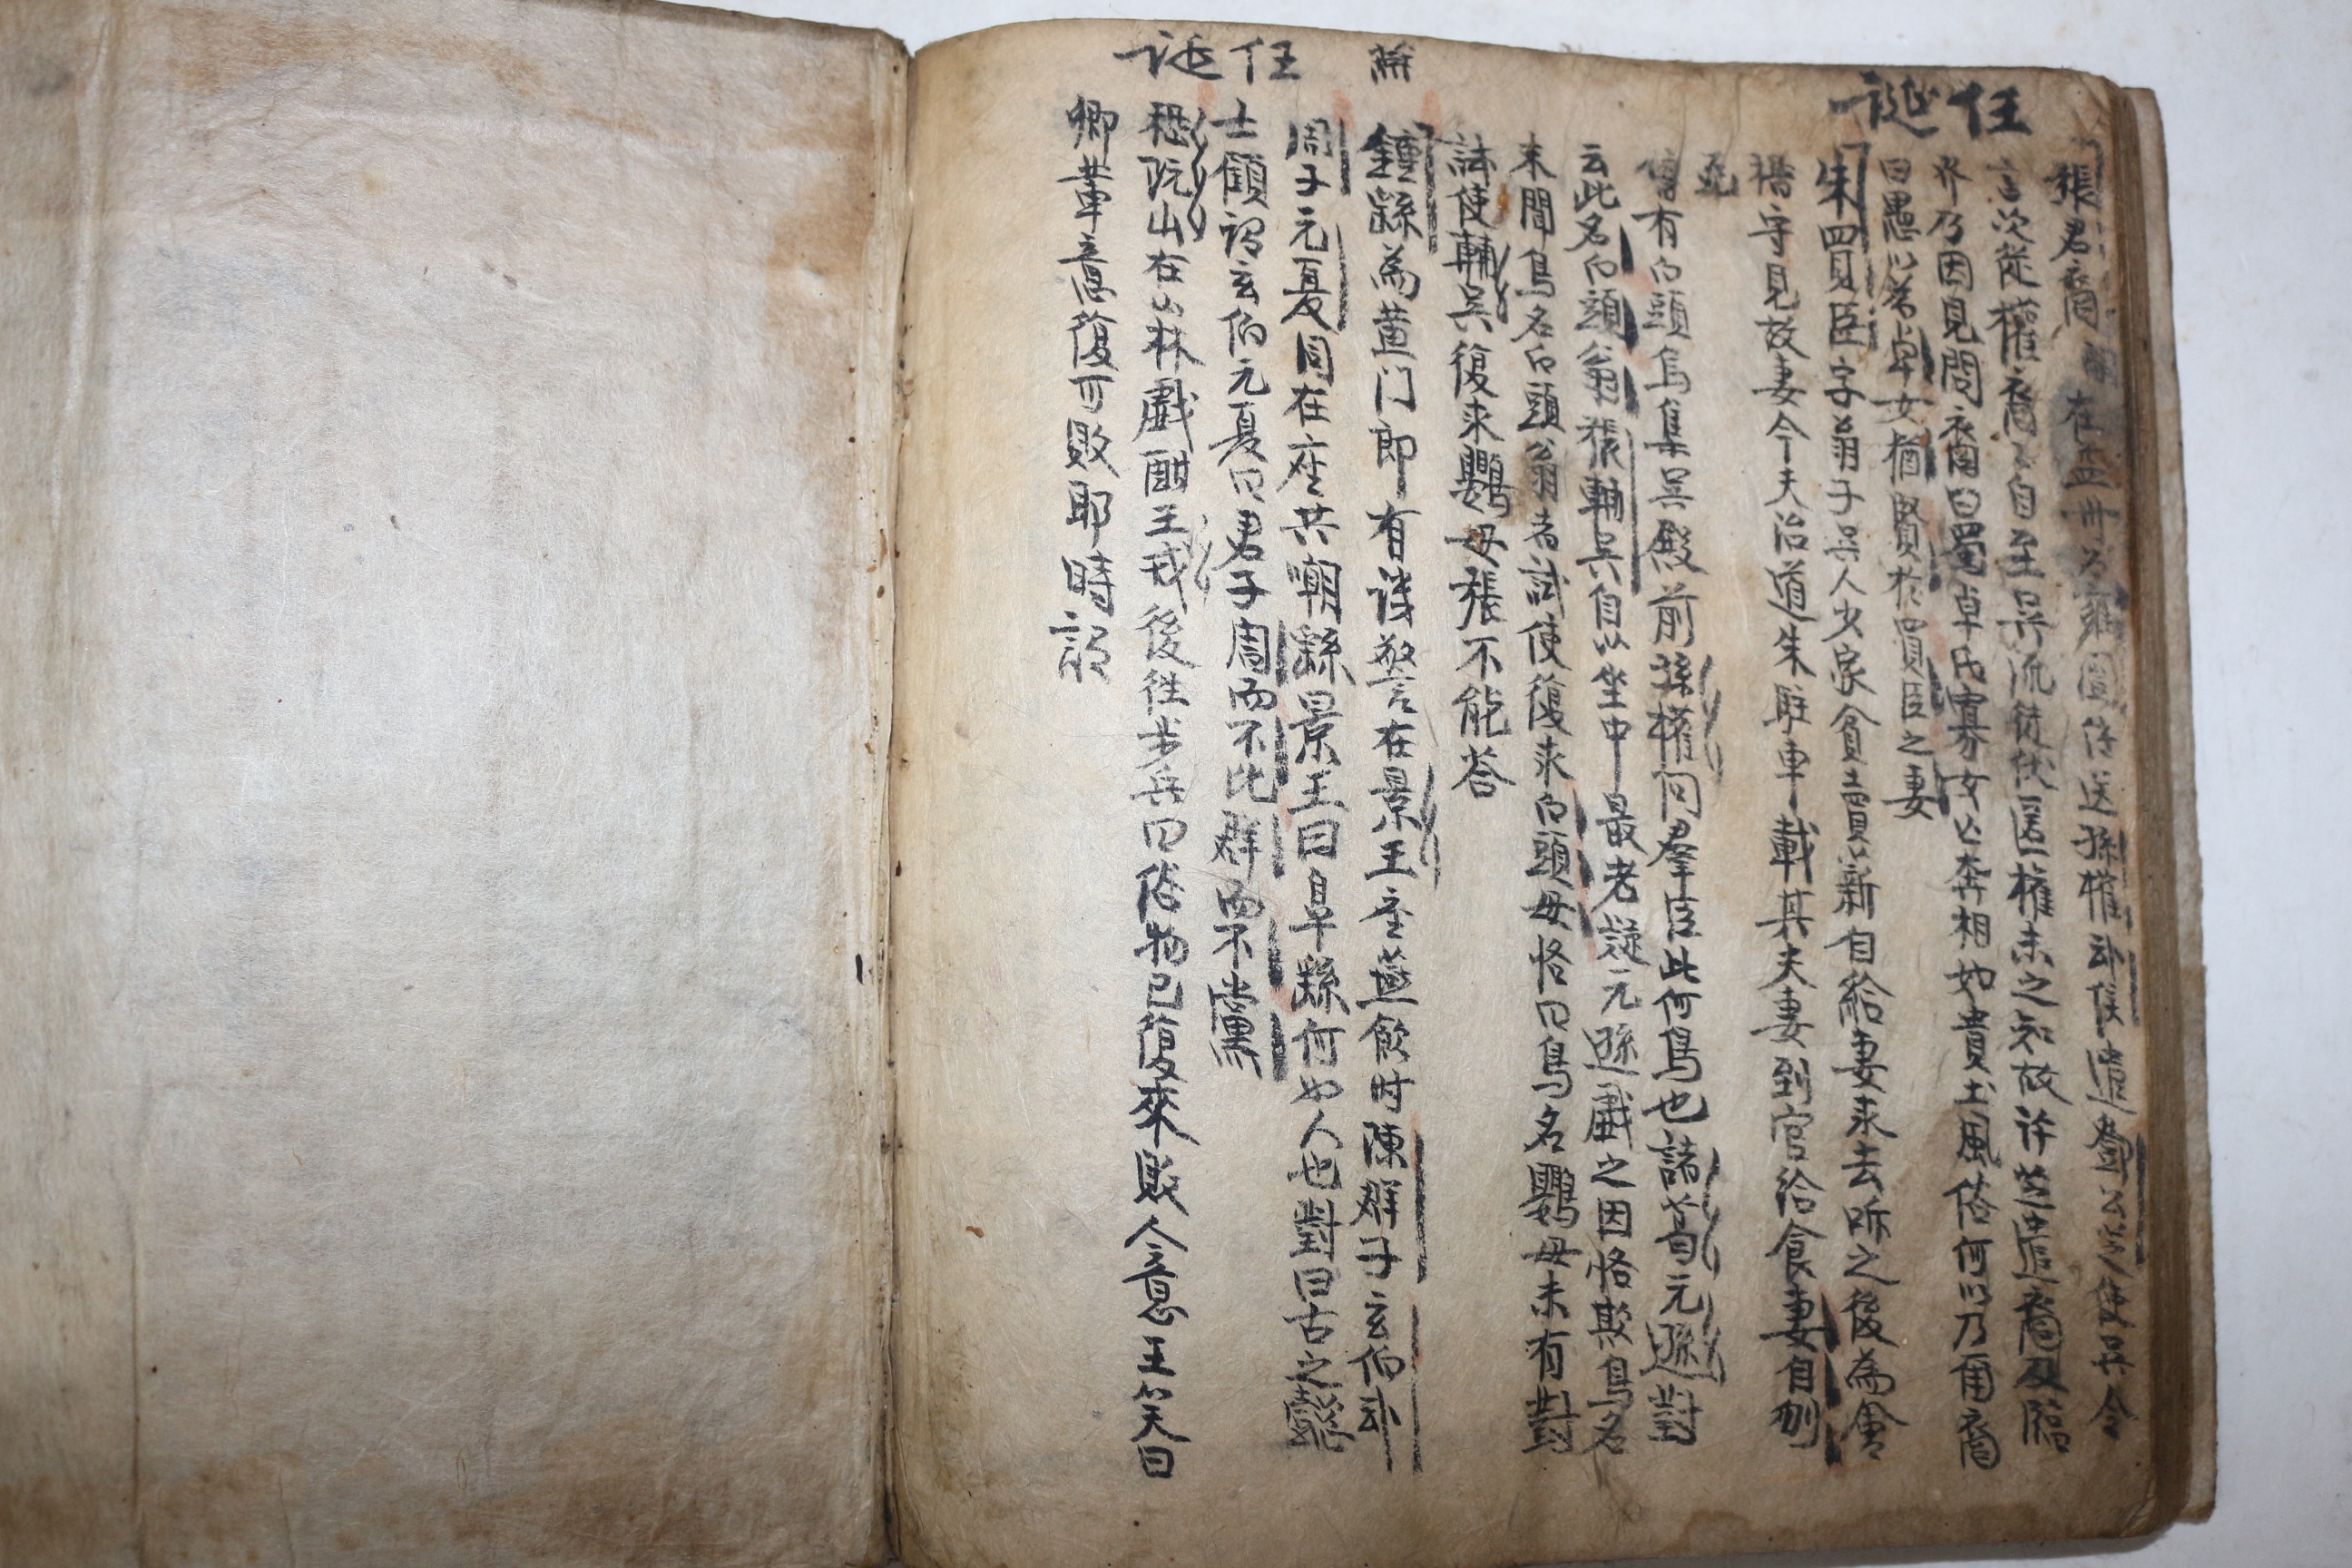 任誕
張君裔 在益州為雍闓俘送孫權武侯遣鄧公芝使吳令
言次從權裔裔自至吳流徙伏匿權未之知故許芝遣裔及臨
乃因見問裔曰蜀卓氏寡女亡奔相如貴土風俗何以乃爾裔
曰愚以為卓女猶賢於買臣之妻
朱買臣字翁子吳人少家貧賣薪自給妻求去听之後為會
守見故妻今夫治道朱駐車載其夫妻到官給食妻自刎
死
曾有白頭鳥集吳殿前孫權問羣臣此何鳥也諸葛元遜對
云此名白頭翁張輔吳自以坐中最老疑元遜戲之因恪欺鳥名
未聞鳥名白頭翁者試使復求白頭母恪曰鳥名鸚母未有對
試使輔吳復求鸚母張不能答
任誕
鍾繇為黃門郎有機警在景王坐燕飲时陳群子玄伯武
周子元夏同在座共嘲繇景王曰皐繇何如人也對曰古之懿
士顧謂玄伯元夏曰君子周而不比群而不黨
嵇阮山在竹林戲酣王戎後往步兵曰俗物已復來敗人意王笑曰
卿輩意復可敗耶時謂